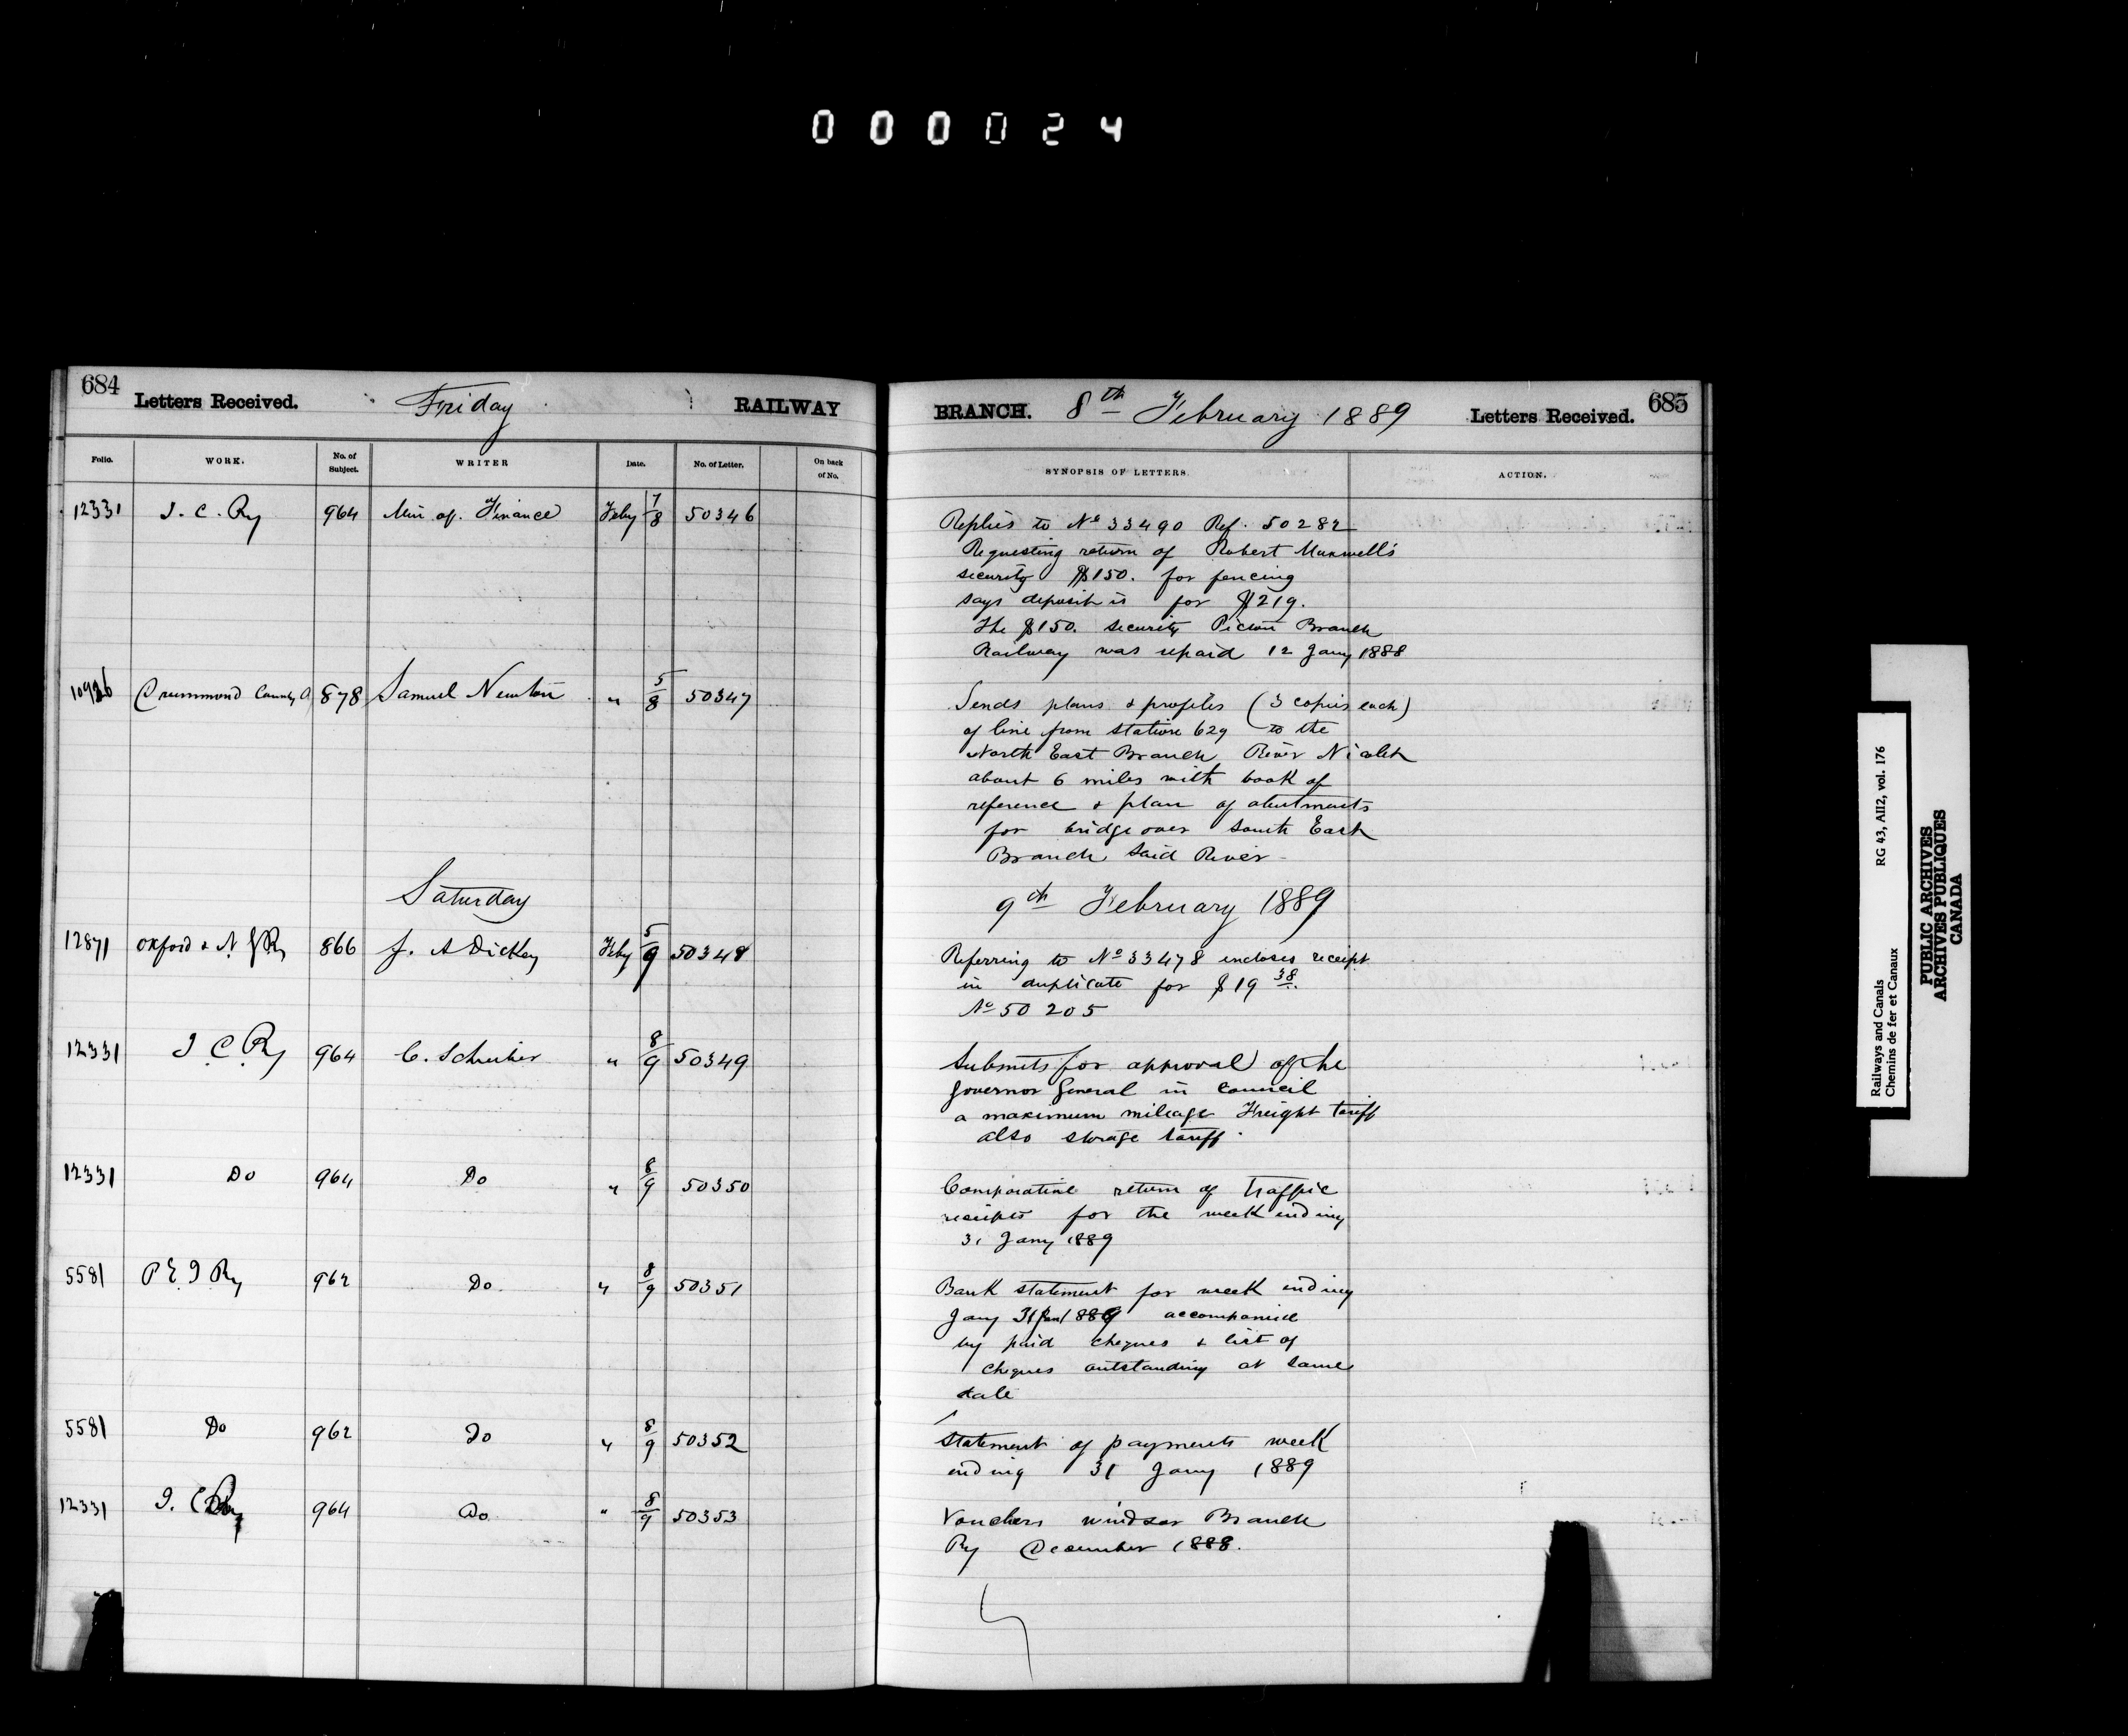 000024
684 Letters Received. Friday RAILWAY
BRANCH. 8th February 1889 Letters Received. 685
Folio. WORK. No. of Subject. WRITER Date. No. of Letter. On back of No.
SYNOPSIS OF LETTERS. ACTION.
12331 I. C. Ry 964 Min of Finance Feby 7/8 50346
Replies to No 33490 Ref. 50282
Requesting return of Robert Maxwell's
security $150. for fencing
says deposit is for $219.
The $150. security Pictou Branch
Railway was repaid 12 Jany 1888
10926 Drummond County 878 Samuel Newton " 5/8 50347
Sends plans & profiles (3 copies each)
of line from station 629 to the
North East Branch River Nicolet
about 6 miles with book of
reference & plan of abutments
for bridge over South East
Branch said River
Saturday
9th February 1889
12871 Oxford & N. G Ry 866 J. A Dickey Feby 5/9 50348
Referring to No 33478 encloses receipt
in duplicate for $19 38.
No 50205
12331 I. C. Ry 964 C. Schreiber " 8/9 50349
Submits for approval of the
Governor General in Council
a maximum mileage Freight tariff
also storage tariff.
12331 Do 964 Do " 8/9 50350
Comparative return of traffic
receipts for the week ending
31 Jany 1889
5581 P. E. I Ry 962 Do " 8/9 50351
Bank statement for week ending
Jany 31 1889 accompanied
by paid cheques & list of
cheques outstanding at same
date
5581 Do 962 Do " 8/9 50352
Statement of payments week
ending 31 Jany 1889
12331 I. C Ry 964 Do " 8/9 50353
Vouchers Windsor Branch
Ry December 1888.
Railways and Canals RG 43, AII2, vol. 176
Chemins de fer et Canaux
PUBLIC ARCHIVES
ARCHIVES PUBLIQUES
CANADA